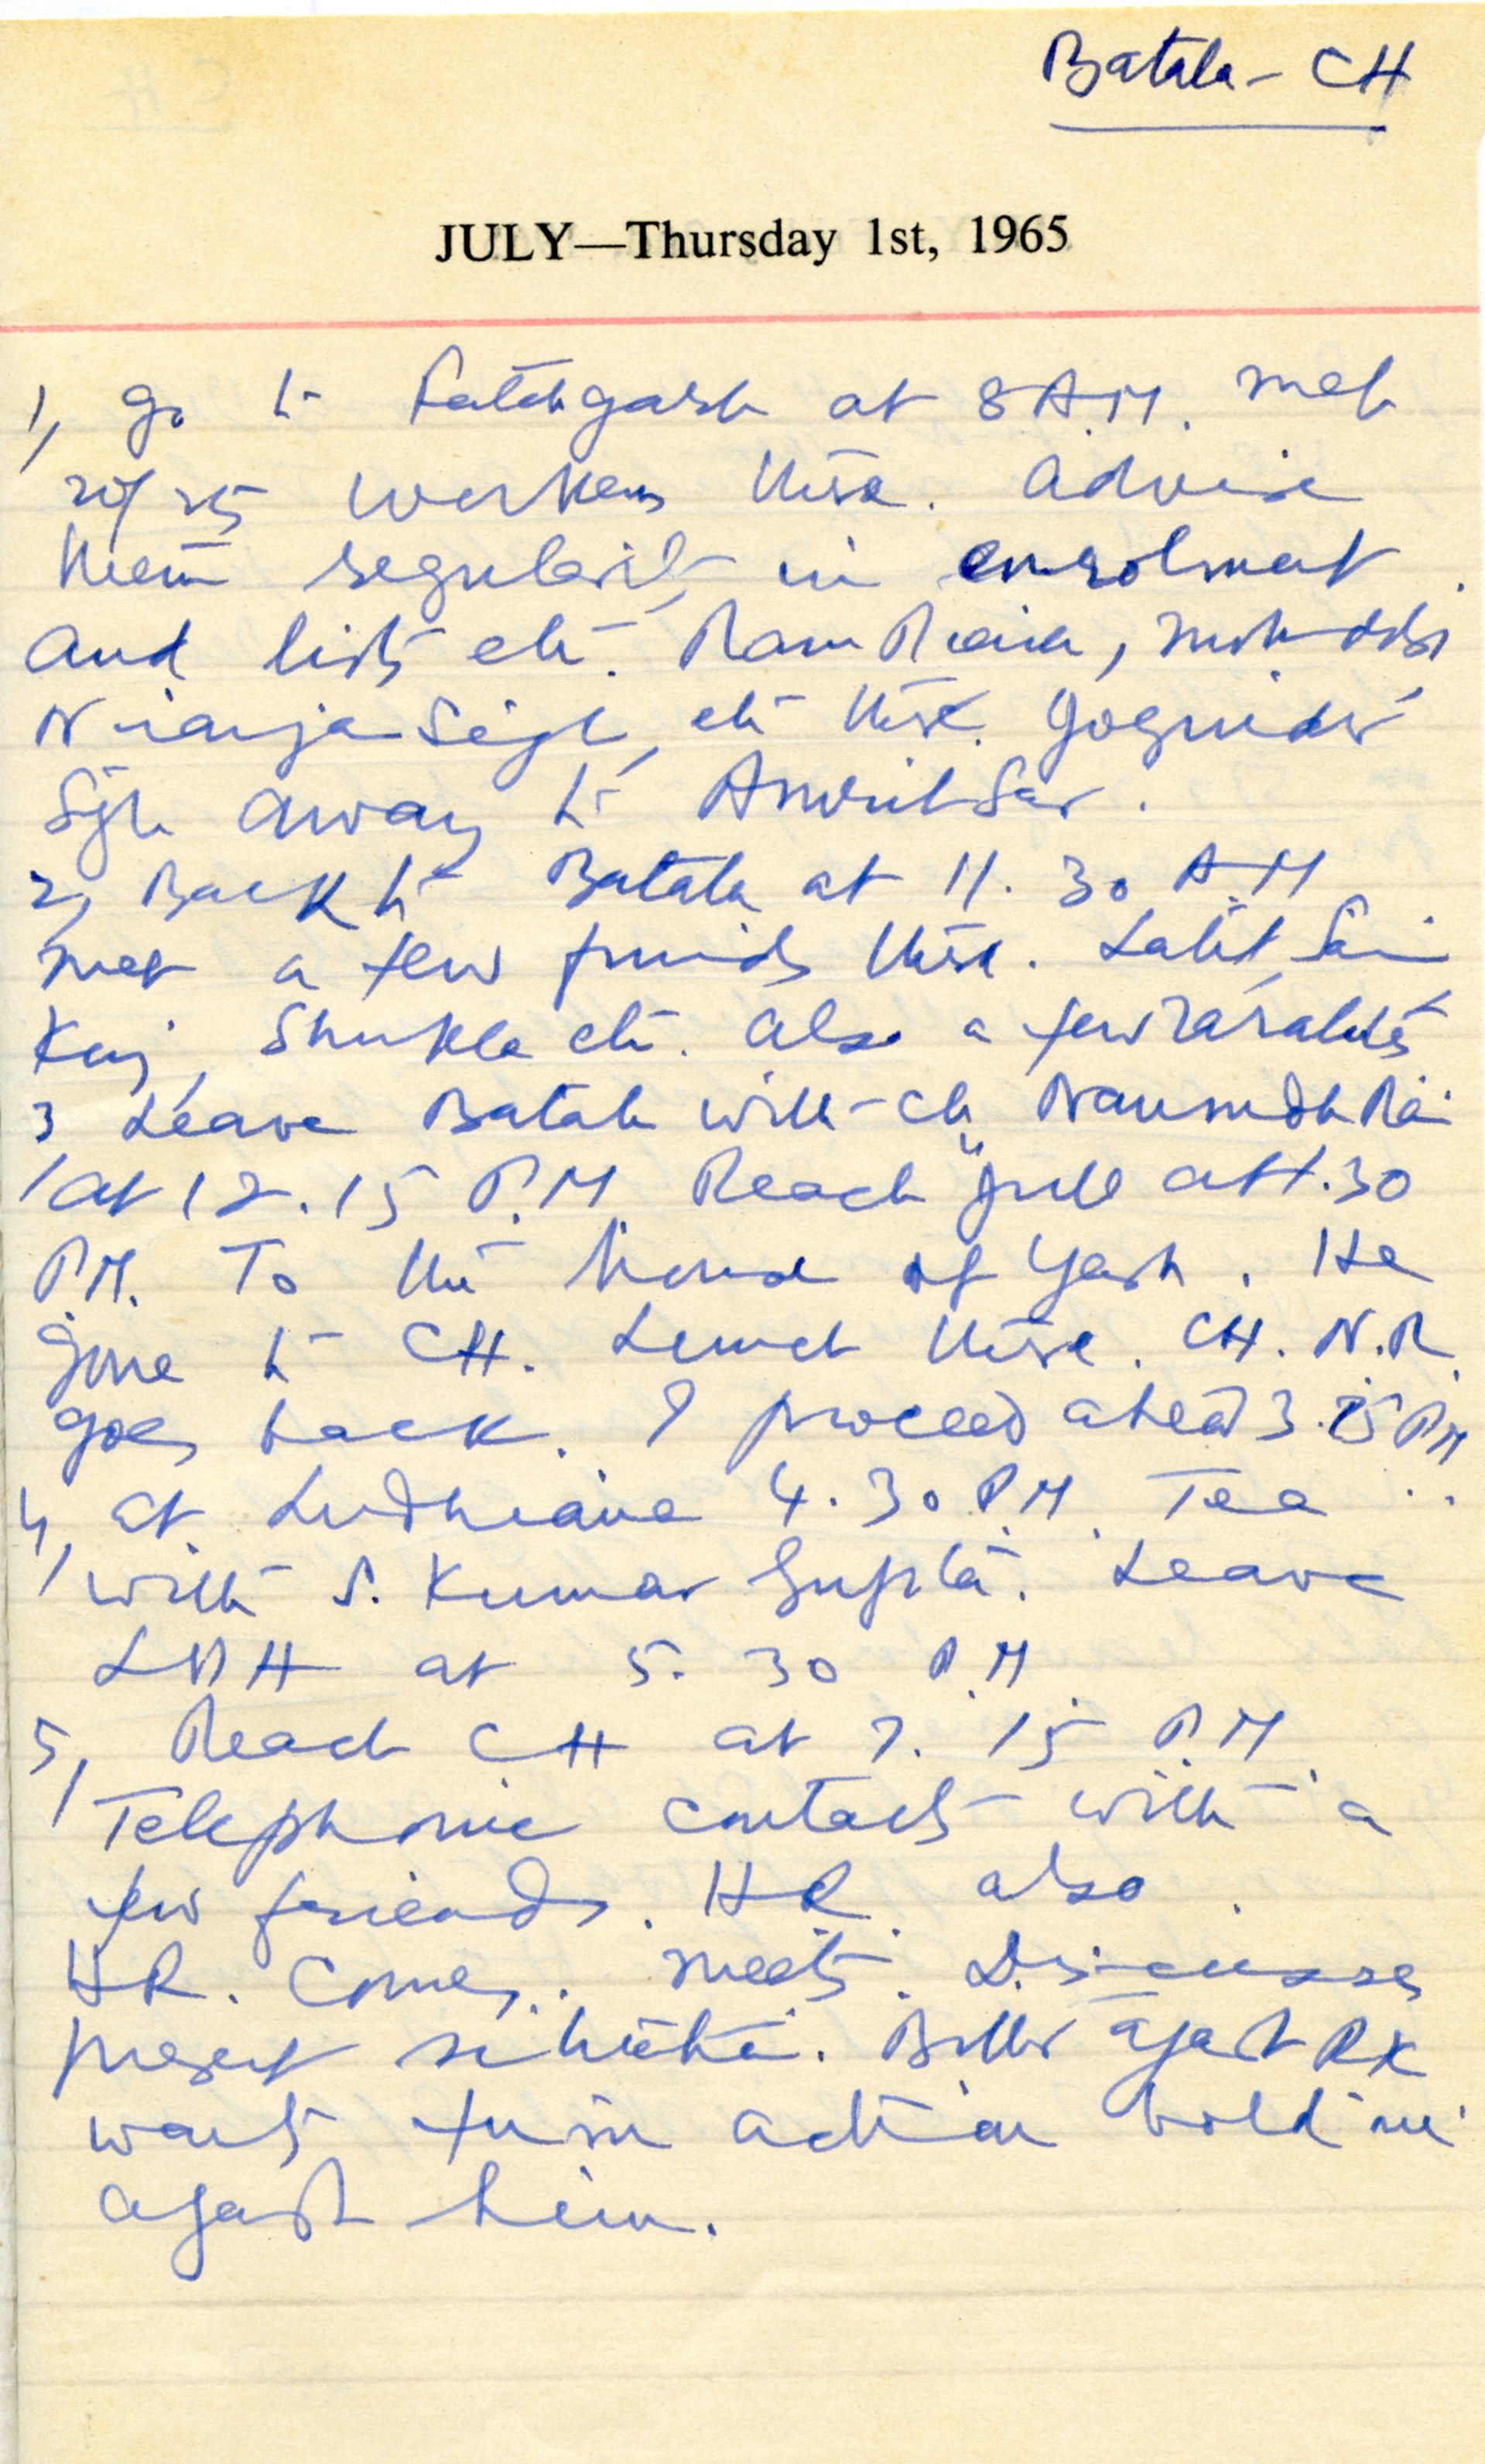 Batala - CH
JULY—Thursday 1st, 1965
1, Go to Fatehgarh at 8 A.M. met
20/25 workers there. Advise
them regularity in enrolment.
and lists etc. Ram
Niranja Singh, etc there. Joginder
Sgh away to Amritsar.
2, Back to Batala at 11.30 A.M
met a few friends there. Lalit Sain
Shukla etc. Also a few
3 Leave Batala with - Ch Naunidh Rai
at 12.15 P.M. Reach Jull at 1.30
P.M. To the house of Yash. He
gone to CH. Lunch there. CH. N.R.
goes back. I proceed ahead 3.25 PM
4, at Ludhiana 4.30 P.M. Tea
with S. Kumar Gupta. Leave
LDH at 5.30 P.M
5, Reach CH at 7.15 P.M.
Telephonic contacts with a
few friends. H.R. also.
H.R. comes. meets. Discusses
present situation. Bitter agast RK
wants firm action
agast him.